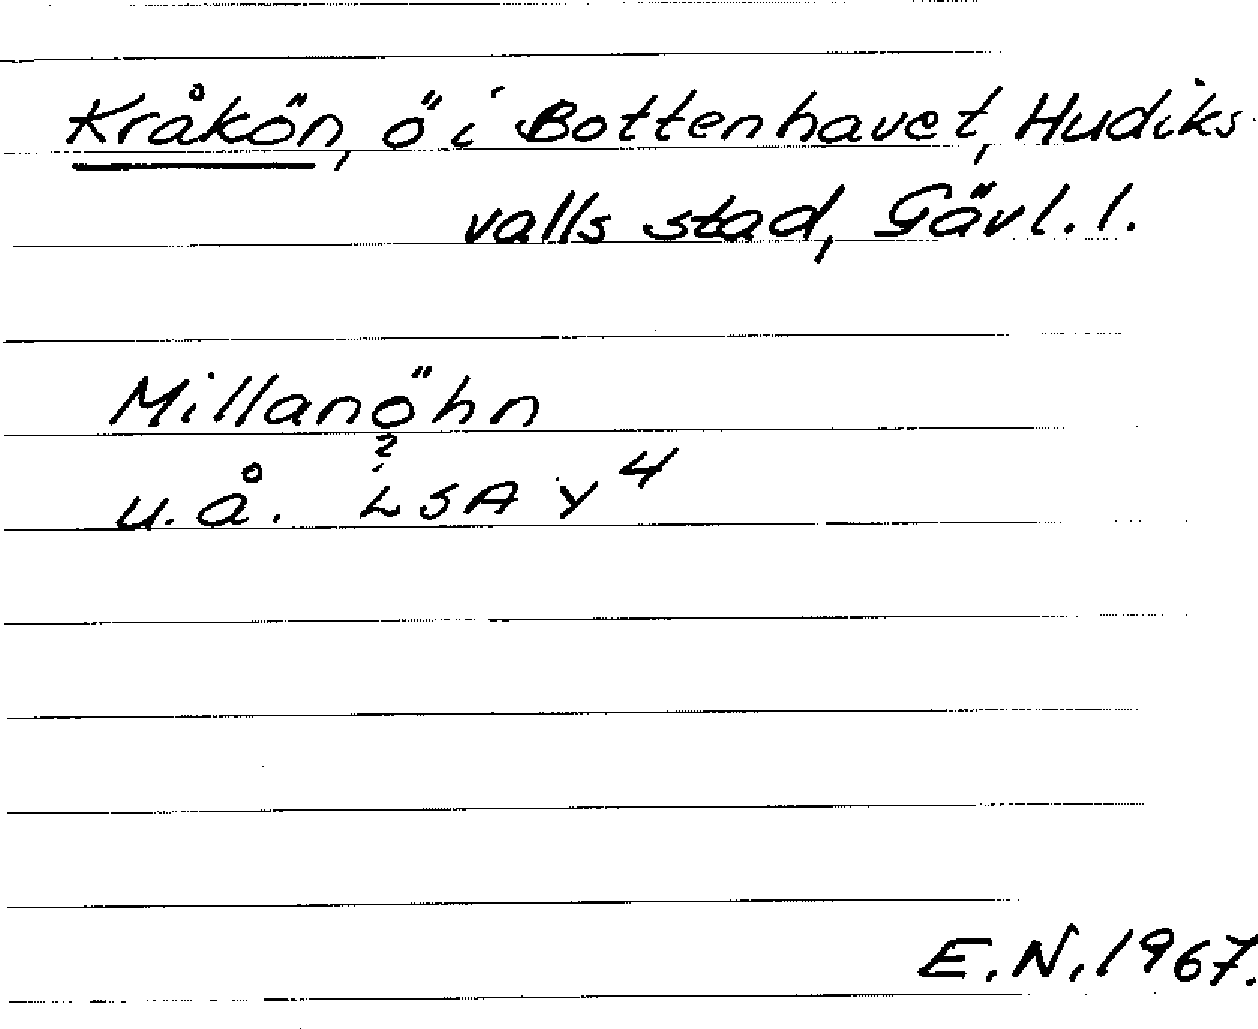 Kråkön, ö i Bottenhavet, Hudiks-
valls stad, Gävl. l.
Millanöhn
?
u.å. LSA Y 4
E.N. 1967.